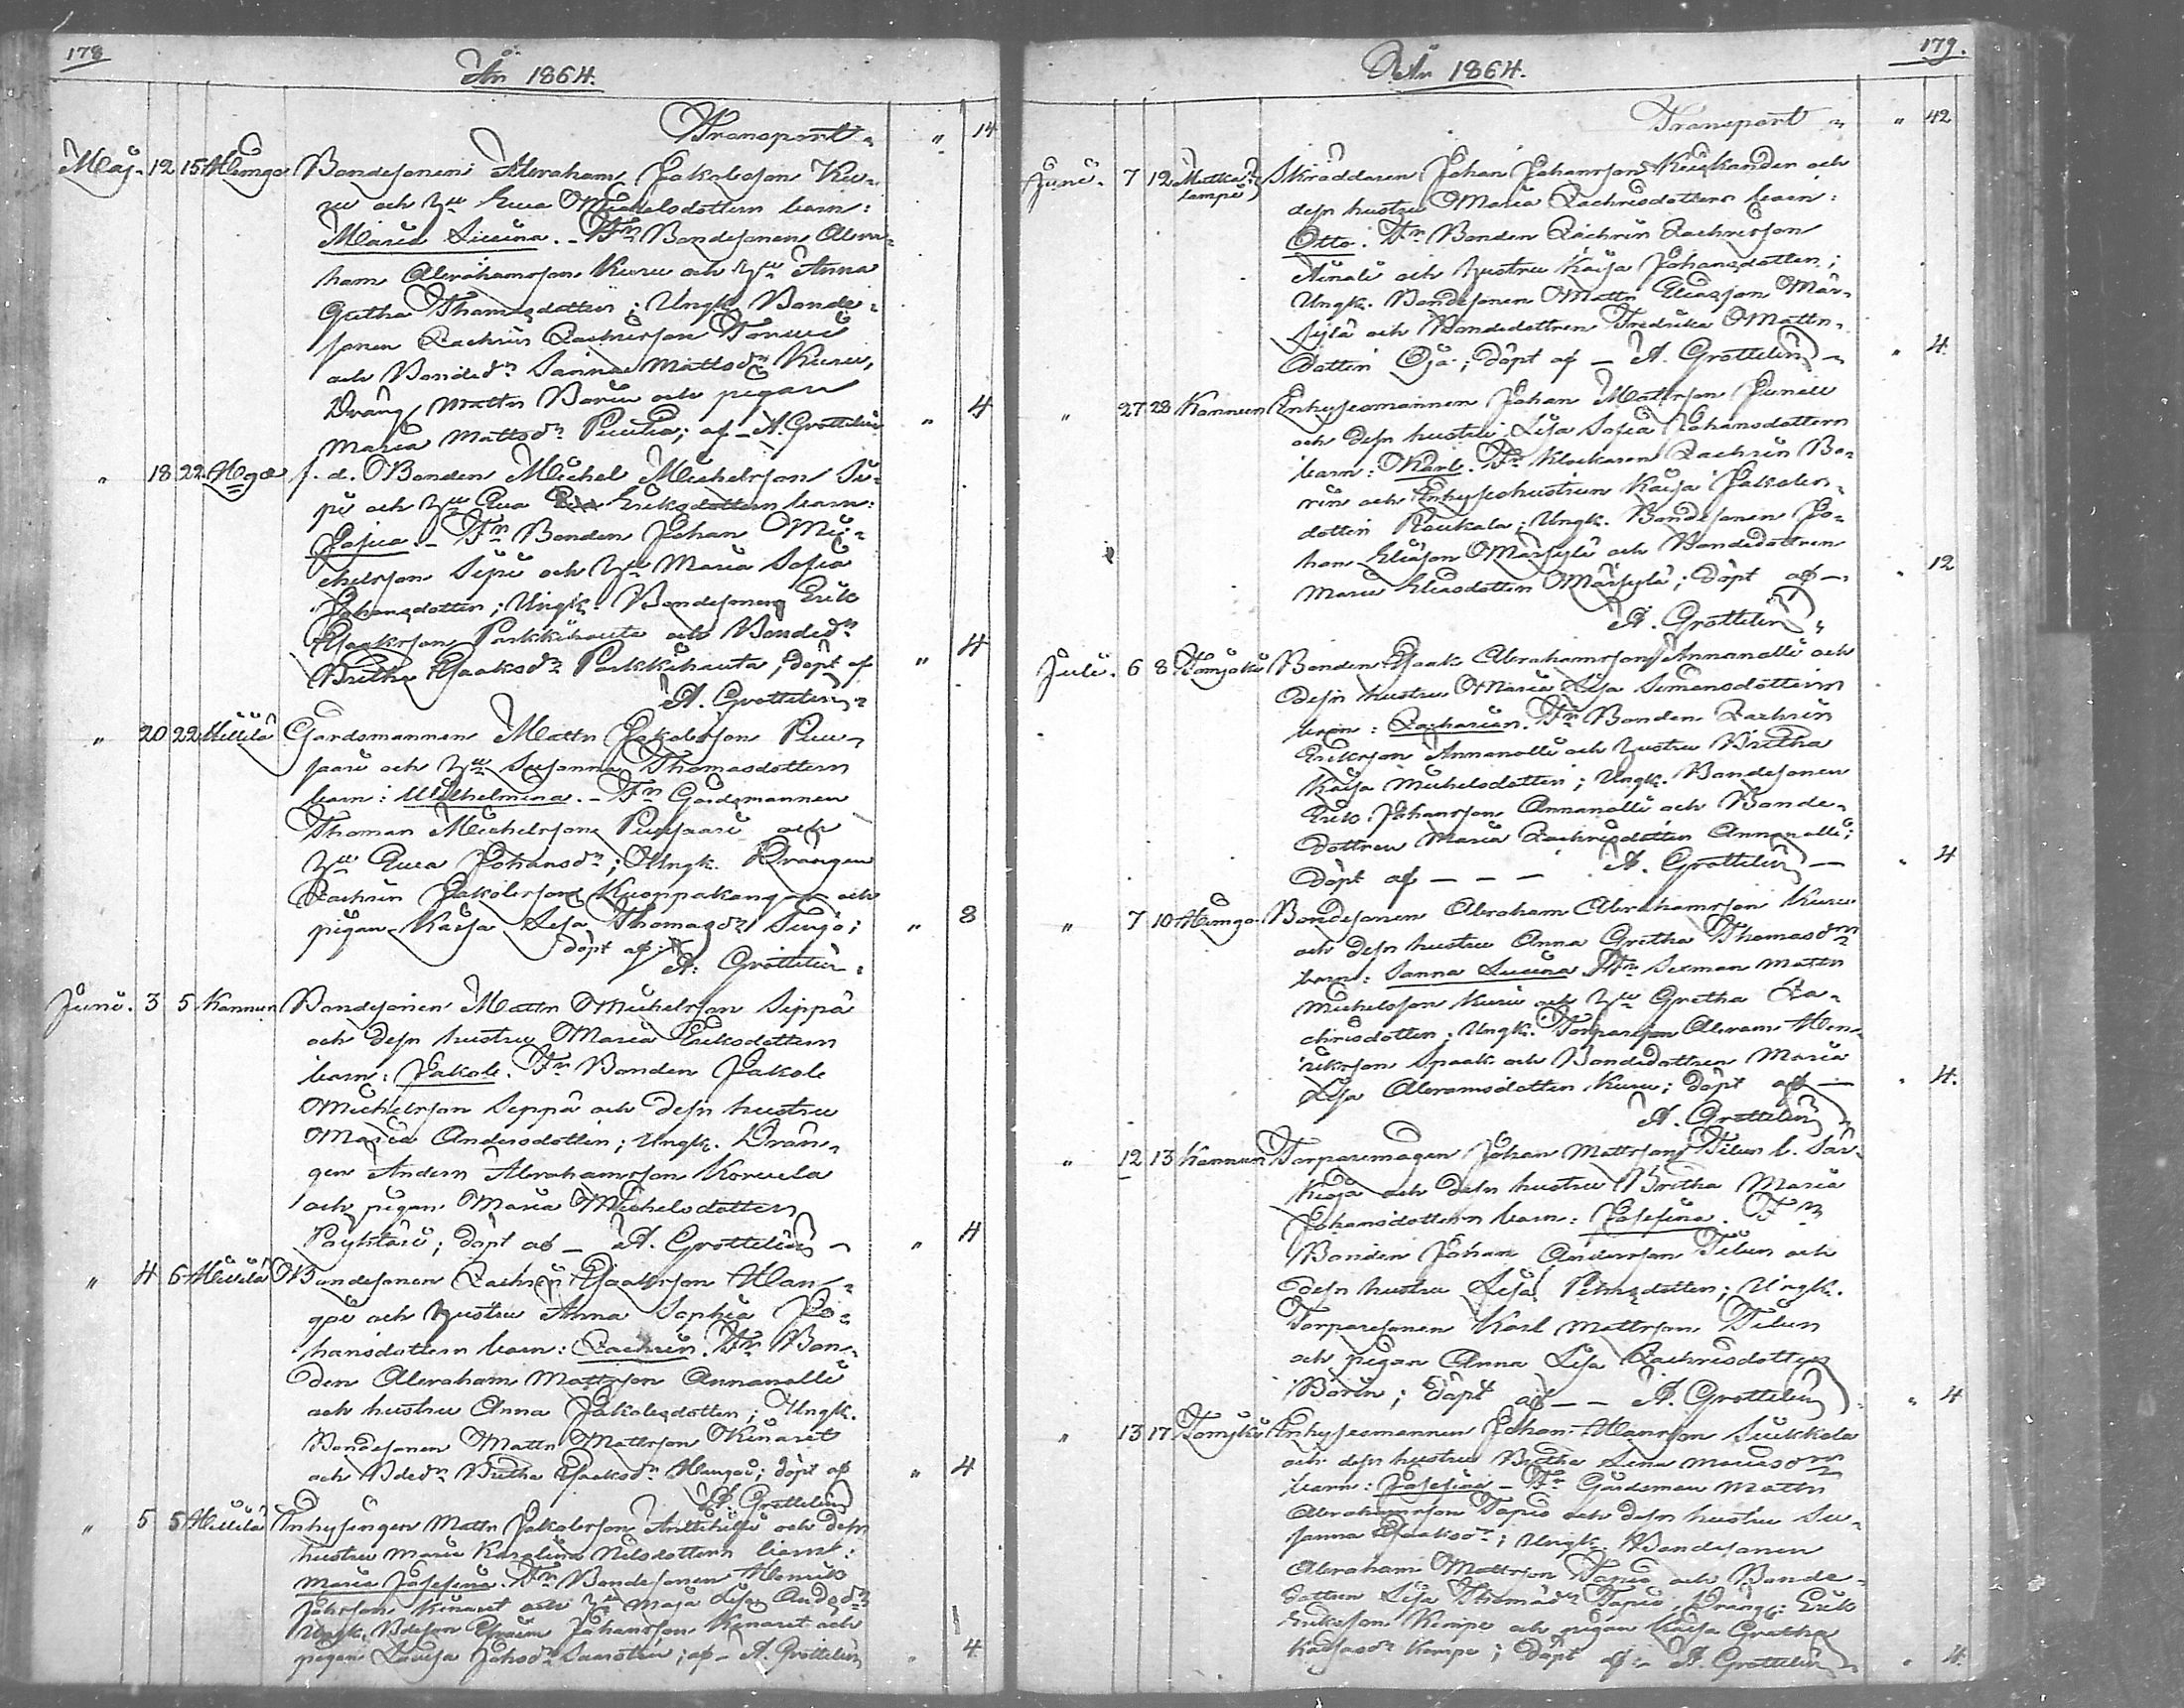 178
År 1864.
Transport „ „ 14
Maj. 12 15 Hunga Bondesonen Abraham Jakobsson Ku-
ru och Hu Eva Michelsdotters barn:
Maria Lisiina. - Fn Bondesonen Abra-
ham Abrahamsson Kuru och Hu Anna
Gretha Thomasdotter; Ungk. Bonde-
sonen Zachris Zachrisson
och Bonded. Sanna Mattsdr Kuru,
Dräng Matts Borin och pigan
Maria Mattsdr; af - A. Grottelin „ 4
„ 18 22 f. d. Bonden Michel Michelsson Si-
pi och Hu Eva Eriksdotters barn:
Josua. - Fn Bonden Johan Mi-
chelsson Sipi och Hu Maria Sofia
Johansdotter; Ungk. Bondesonen Erik
Isaaksson Parkkihauta och Bondedr
Britha Isaaksdr Parkkihauta; döpt af „ 4
A. Grottelin „
„ 20 22 Hillilä Gårdsmannen Matts Jakobsson Puu-
saari och Hu Susanna Thomasdotters
barn: Wilhelmina. - Fn Gårdsmannen
Thomas Michelsson Puusaari och
Hu Eva Johansdr; Ungk. Drängen
Zachris Jakobsson Kuoppakangas och
pigan Kaisa Lisa Thomasdr; „ 8
döpt af:
A. Grottelin.
Juni. 3 5 Kannus Bondesonen Matts Michelsson Seppä
och dess hustru Maria Eriksdotters
barn: Jakob. Fn Bonden Jakob
Michelsson Seppä och dess hustru
Maria Andersdotter; Ungk. Drän-
gen Anders Abrahamsson Korvela
och pigan Maria Michelsdotter
; döpt af - A. Grottelin - „ 4
„ 4 6 Hillilä Bondesonen Zachris Isaaksson Han-
goi och hustru Anna Sophia Jo-
hansdotters barn: Zachris. Fn Bon-
den Abraham Mattsson Annanolli
och hustru Anna Jakobsdotter; Ungk.
Bondesonen Matts Mattsson Kinaret
och Bdedr Britha Isaaksdr Hangoi; döpt af „ 4
A. Grottelin
„ 5 5 Hillilä Inhysingen Matts Jakobsson Anttihilli och dess
hustru Maria Karolina Nilsdotters barn:
Maria Josefina. Fn Bondesonen Henrik
Johsson Kinaret och Hu Maja Lisa Andsdr
Ungk. Bdeson Efraim Johansson Kinaret och
pigan Lovisa Johsdr; af - A. Grottelin „ 4
179.
År 1864.
Transport „ „ 42
Juni. 7 12 Mutka- Skräddaren Johan Johansson Keiskander och
lampi dess hustru Maria Zachrisdotters barn:
Otto. Fn Bonden Zachris Zachrisson
Ainali och hustru Kaisa Johansdotter;
Ungk. Bondesonen Matts Eliasson Mär-
sylä och Bondedottren Fredrika Matts-
dotter Oja; döpt af - A. Grottelin - „ 4
„ 27 28 Kannus Inhysesmannen Johan Mattsson Junell
och dess hustru Lisa Sofia Johansdotters
barn: Karl. Fn Klockaren Zachris Bo-
rin och Inhyseshustrun Kaisa Jakobs-
dotter Raukala; Ungk. Bondesonen Jo-
han Eliasson Märsylä och Bondedottren
Maria Eliasdotter Märsylä; döpt af - „ 12
A. Grottelin „
Juli. 6 8 Tomjoki Bonden Isaak Abrahamsson Annanolli och
dess hustru Maria Lisa Simonsdotters
barn: Zacharias. Fn Bonden Zachris
Eriksson Annanolli och hustru Britha
Kaisa Michelsdotter; Ungk. Bondesonen
Erik Johansson Annanolli och Bonde-
dottren Maria Zachrisdotter Annanolli;
döpt af - - - A. Grottelin - „ 4
„ 7 10 Hunga Bondesonen Abraham Abrahamsson Kuru
och dess hustru Anna Gretha Thomasdrs
barn: Sanna Lisiina Fn Sexman Matts
Michelsson Kuru och Hu Gretha Za-
chrisdotter; Ungk. Torparson Abram Hen-
riksson Spaak och Bondedottren Maria
Lisa Abramsdotter Kuru; döpt af - „ 4.
A. Grottelin
„ 12 13 Kannus Torparemågen Johan Mattsson Tilus l. Sär-
kioja och dess hustru Britha Maria
Johansdotters barn: Josefina. Fn
Bonden Johan Andersson Tilus och
dess hustru Lisa Petersdotter; Ungk.
Torparesonen Karl Mattsson Tilus
och pigan Anna Lisa Zachrisdotter
Borin; döpt af - - A. Grottelin „ 4
„ 13 17 Tomjoki Inhysesmannen Johan Hansson Suikkola
och dess hustru Britha Lena Mariasdrs
barn: Josefina - Fn Gårdsman Matts
Abrahamsson Tapio och dess hustru Su-
sanna Isaksdr; Ungk. Bondesonen
Abraham Mattsson Tapio och Bonde-
dottren Lisa Thomasdr Tapio Dräng: Erik
Eriksson Kempe och pigan Kaisa Gretha
Kaisasdr Kempe; döpt af - A. Grottelin „ 4.